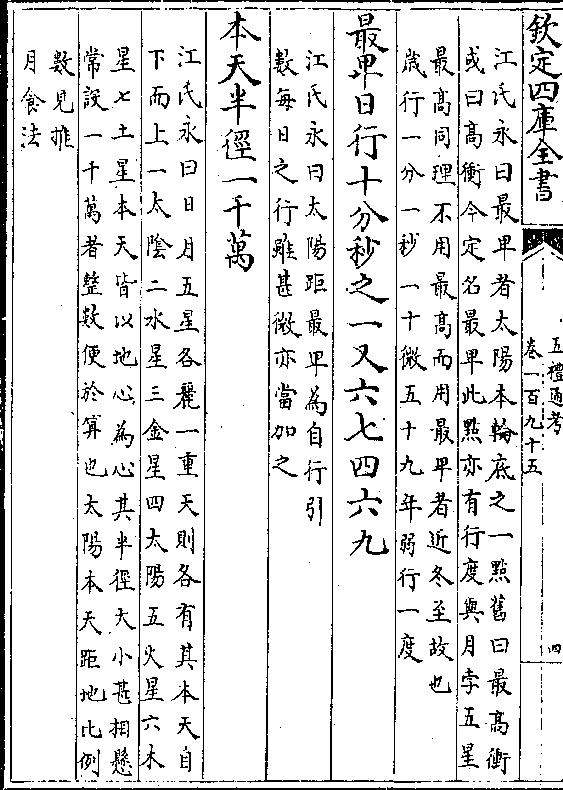 欽定四庫全書
五禮通考
卷一百九十五
四
江氏永曰最卑者太陽本輪底之一點舊曰最高衝
或曰高衝今定名最卑此點亦有行度與月孛五星
最高同理不用最高而用最卑者近冬至故也
歲行一分一秒一十微五十九年弱行一度
最卑日行十分秒之一又六七四六九
江氏永曰太陽距最卑為自行引
數每日之行雖甚微亦當加之
本天半徑一千萬
江氏永曰日月五星各麗一重天則各有其本天自
下而上一太陰二水星三金星四太陽五火星六木
星七土星本天皆以地心為心其半徑大小甚相懸
常設一千萬者整數便於算也太陽本天距地比例
數見推
月食法